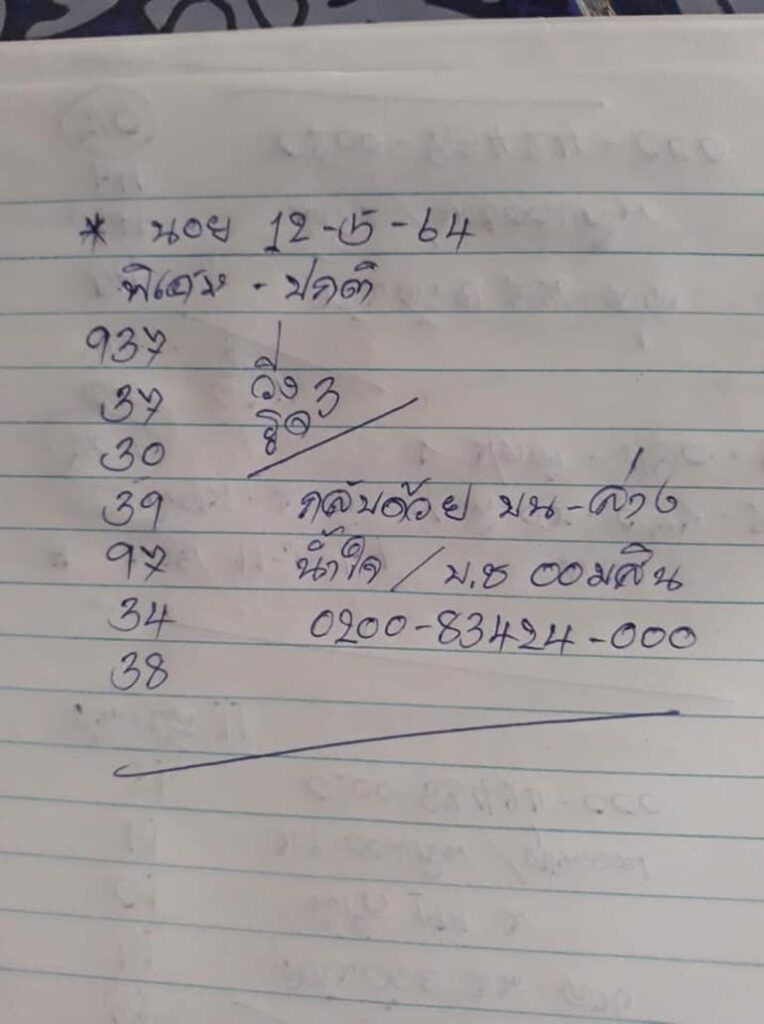 * นอย 12-5-64
พิเศษ - ปกติ
937
37 วิ่ง 3
30 รูด
39 กลับด้วย บน-ล่าง
97 น้ำใจ / บ.ช ออมสิน
34 0200-83424-000
38